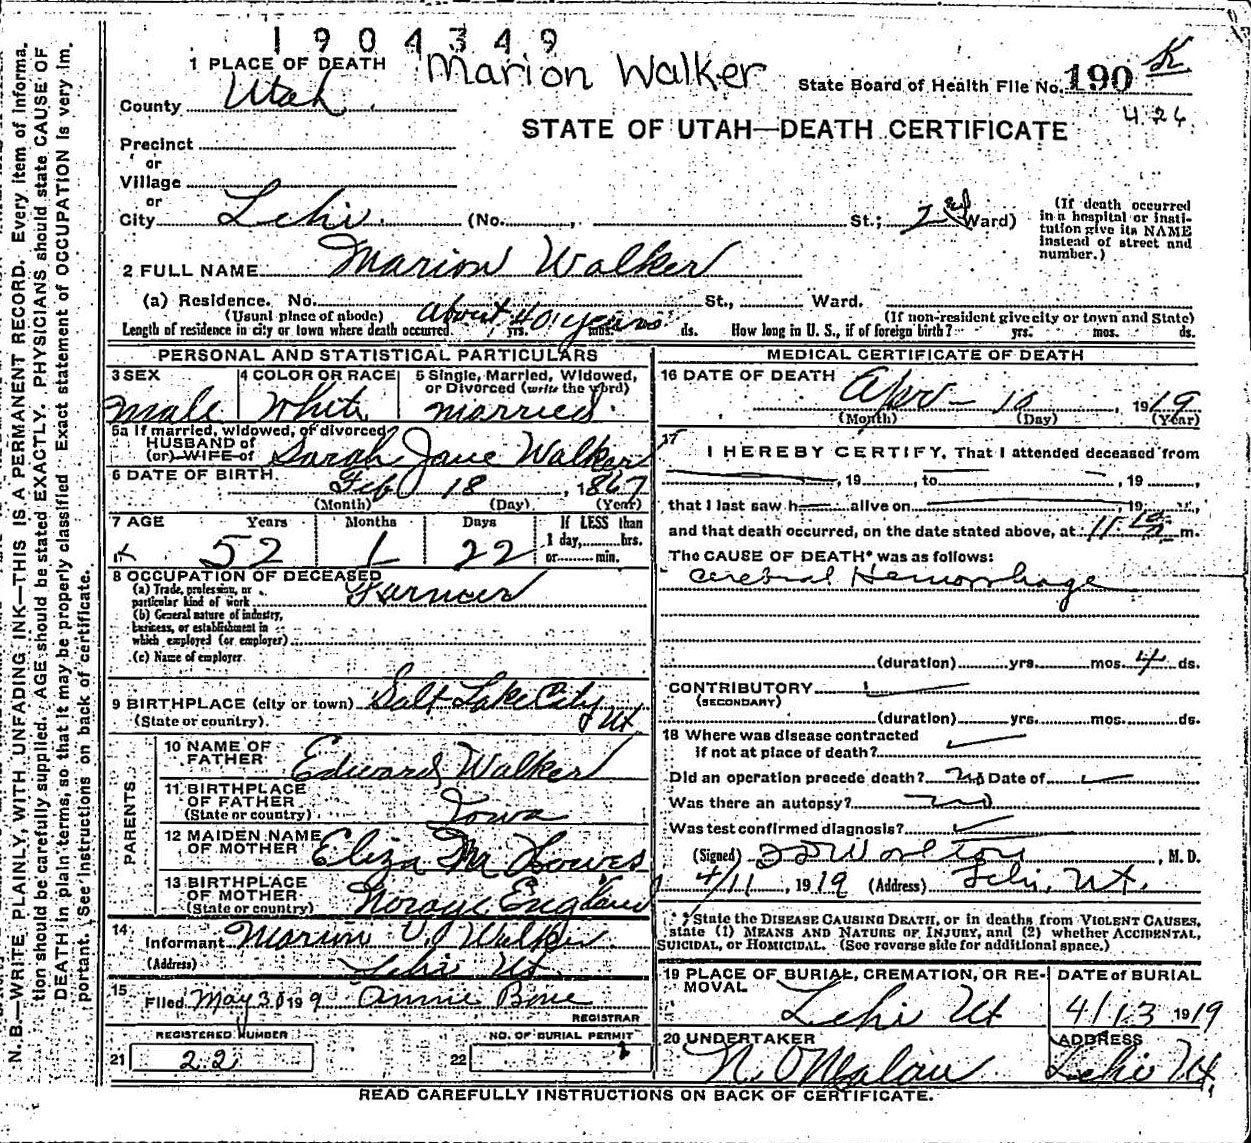 1904349
1 PLACE OF DEATH Marion Walker State Board of Health File No. 190 K
County Utah 426
STATE OF UTAH—DEATH CERTIFICATE
Precinct
or
Village
or
City Lehi. (No. , St.; 2nd Ward) (If death occurred in a hospital or institution give its NAME instead of street and number.)
2 FULL NAME Marion Walker
(a) Residence. No. St., Ward.
(Usual place of abode) (If non-resident give city or town and State)
Length of residence in city or town where death occurred About 40 years yrs. mos. ds. How long in U. S., if of foreign birth? yrs. mos. ds.
PERSONAL AND STATISTICAL PARTICULARS
3 SEX
male
4 COLOR OR RACE
White
5 Single, Married, Widowed,
or Divorced (write the word)
married.
5a If married, widowed, or divorced
HUSBAND of
(or) WIFE of Sarah Jane Walker
6 DATE OF BIRTH
Feb 18, 1867
(Month) (Day) (Year)
7 AGE Years Months Days If LESS than
1 day, hrs.
52 1 22 or min.
8 OCCUPATION OF DECEASED
(a) Trade, profession, or
particular kind of work Farmer
(b) General nature of industry,
business, or establishment in
which employed (or employer)
(c) Name of employer
9 BIRTHPLACE (city or town) Salt Lake City
(State or country). Ut
PARENTS
10 NAME OF
FATHER Edward Walker
11 BIRTHPLACE
OF FATHER
(State or country) Iowa
12 MAIDEN NAME
OF MOTHER Eliza
13 BIRTHPLACE
OF MOTHER
(State or country) England
14
Informant Marion Walker
(Address) Lehi Ut
15
Filed May 30 1919 Annie Bone
REGISTRAR
REGISTERED NUMBER NO. OF BURIAL PERMIT
21 22 22 1
MEDICAL CERTIFICATE OF DEATH
16 DATE OF DEATH
Apr - 10, 1919
(Month) (Day) (Year)
17
I HEREBY CERTIFY, That I attended deceased from
, 19 , to , 19 ,
that I last saw h alive on , 19 ,
and that death occurred, on the date stated above, at m.
The CAUSE OF DEATH* was as follows:
Cerebral Hemorrhage
(duration) yrs. mos. 4 ds.
CONTRIBUTORY
(SECONDARY)
(duration) yrs. mos. ds.
18 Where was disease contracted
if not at place of death?
Did an operation precede death? No Date of
Was there an autopsy? no
Was test confirmed diagnosis?
(Signed) , M. D.
4/11, 1919 (Address) Lehi, Ut.
* State the DISEASE CAUSING DEATH, or in deaths from VIOLENT CAUSES,
state (1) MEANS AND NATURE OF INJURY, and (2) whether ACCIDENTAL,
SUICIDAL, or HOMICIDAL. (See reverse side for additional space.)
19 PLACE OF BURIAL, CREMATION, OR REMOVAL
Lehi Ut
DATE of BURIAL
4/13 1919
20 UNDERTAKER
N. O Malan
ADDRESS
Lehi Ut,
READ CAREFULLY INSTRUCTIONS ON BACK OF CERTIFICATE.
N. B.—WRITE PLAINLY, WITH UNFADING INK—THIS IS A PERMANENT RECORD. Every item of informa-
tion should be carefully supplied. AGE should be stated EXACTLY. PHYSICIANS should state CAUSE OF
DEATH in plain terms, so that it may be properly classified. Exact statement of OCCUPATION is very im-
portant. See instructions on back of certificate.